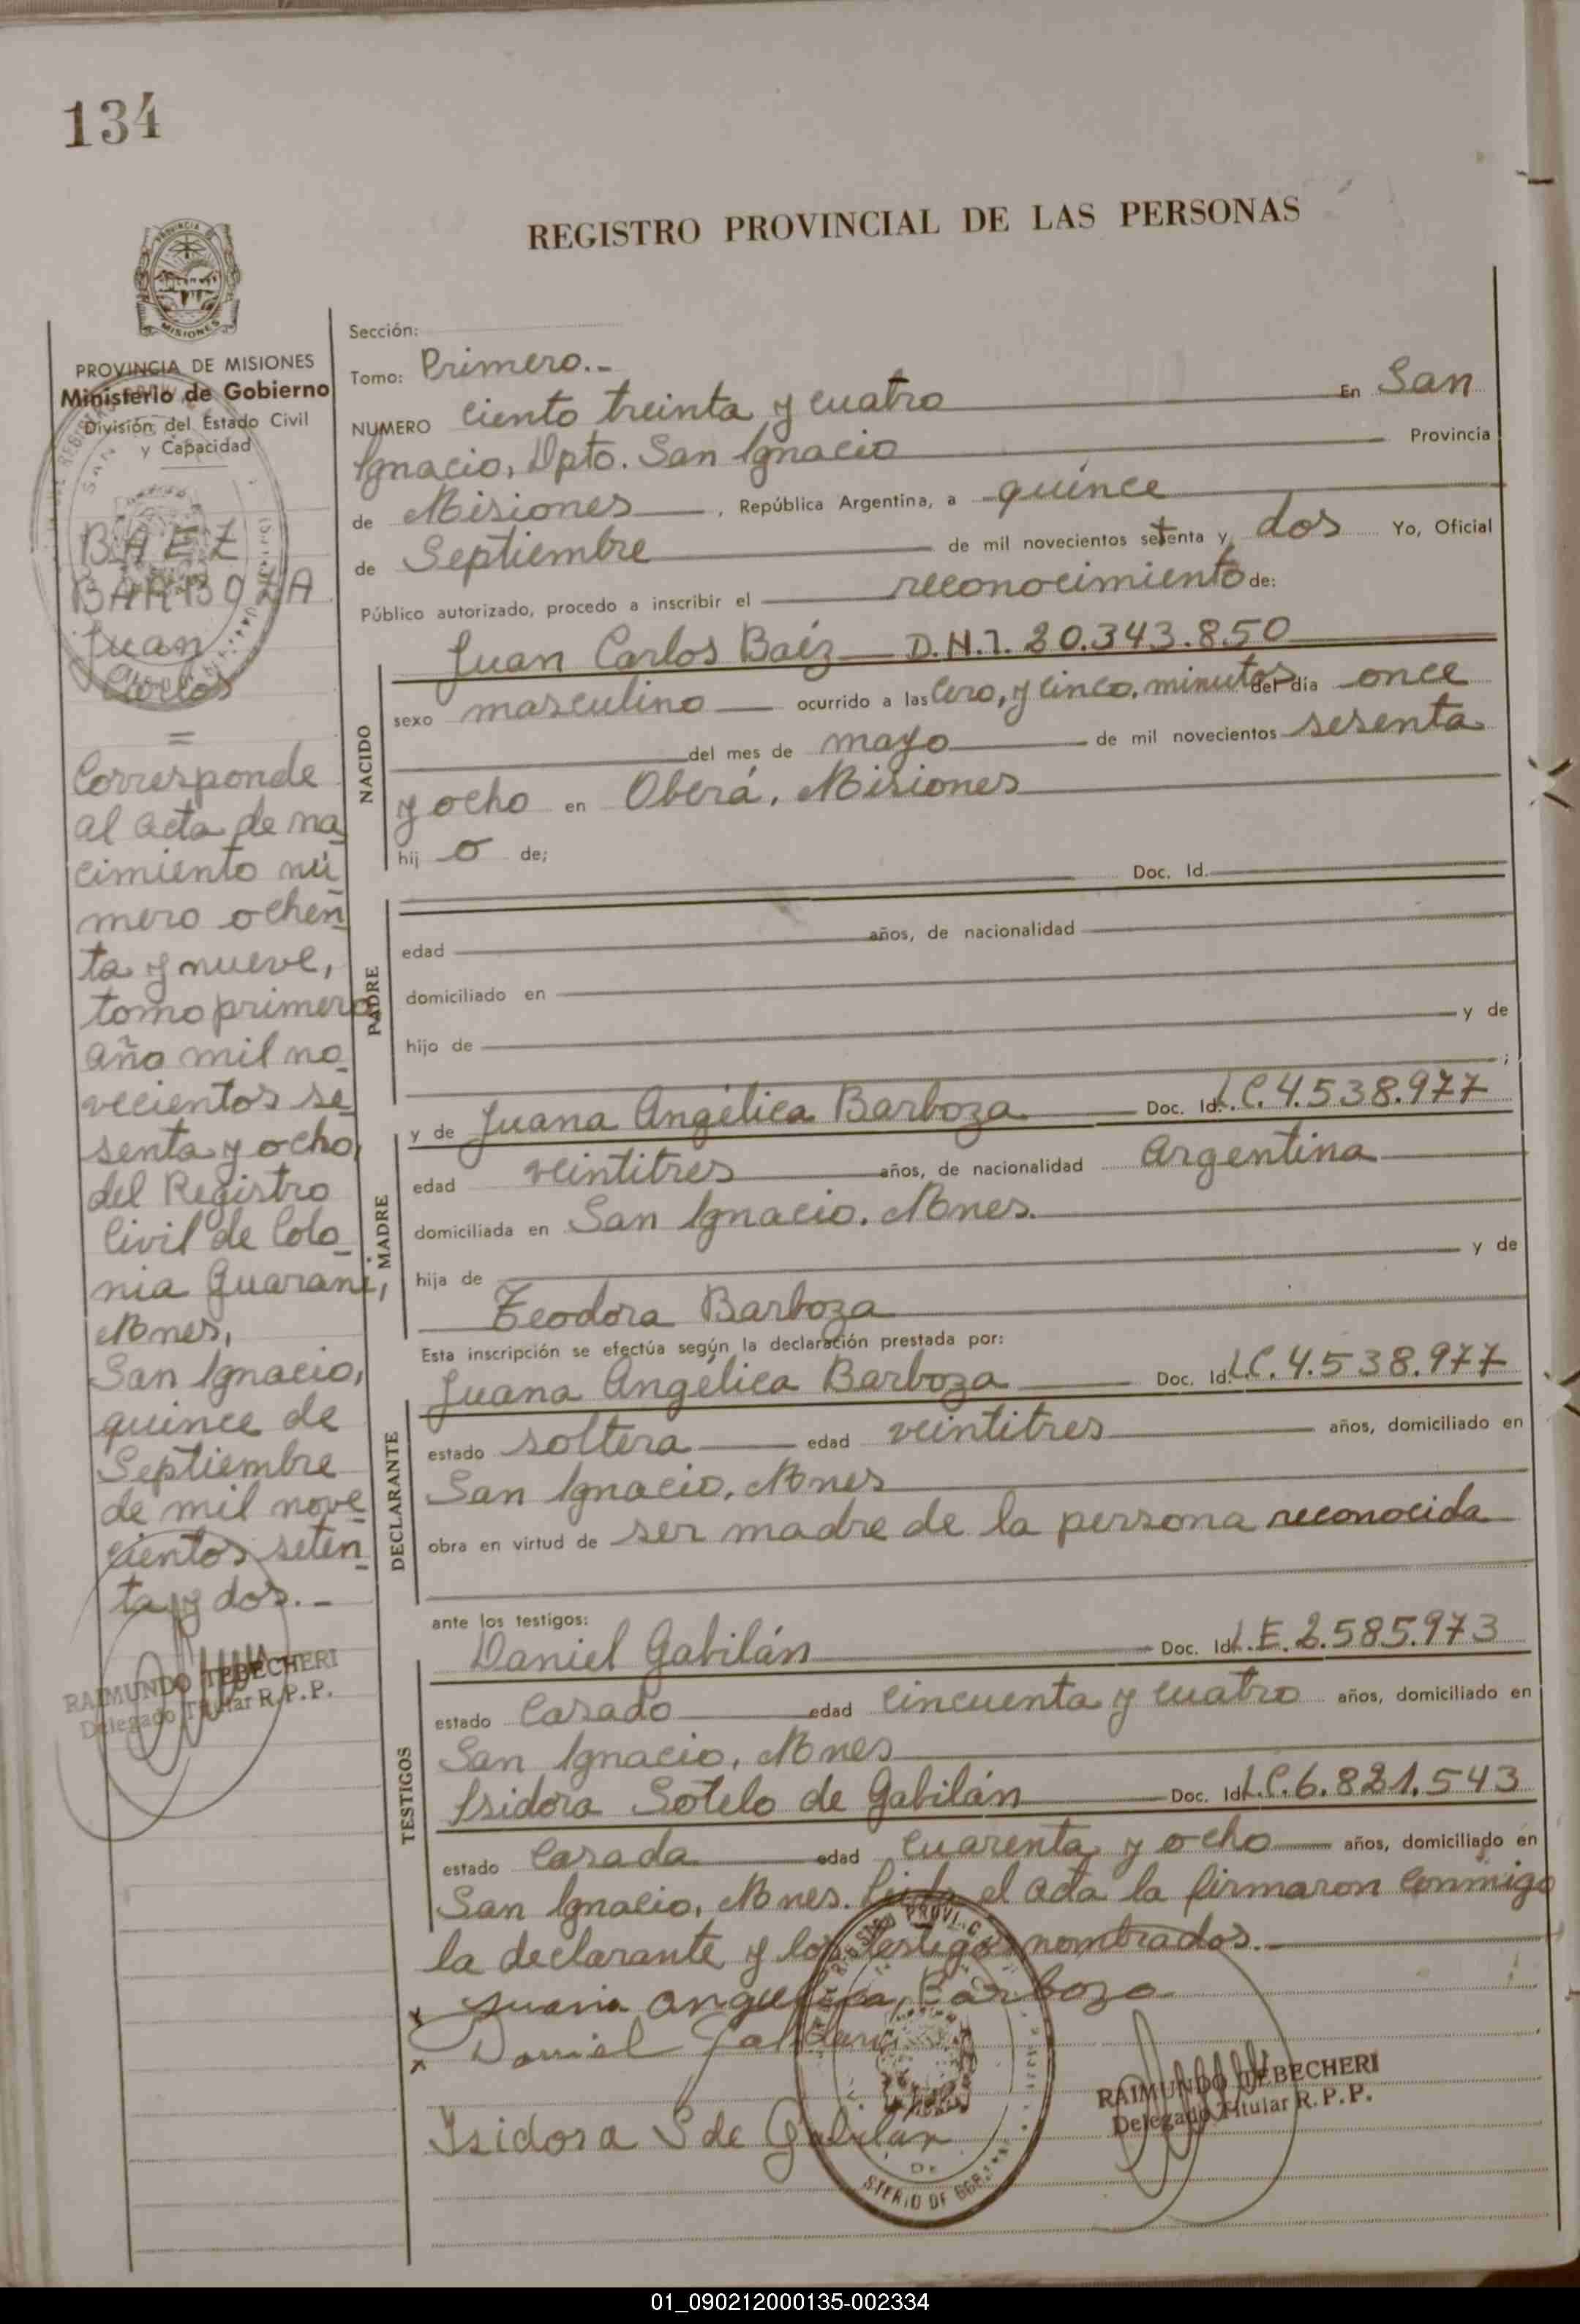 134
REGISTRO PROVINCIAL DE LAS PERSONAS
MISIONES
PROVINCIA DE MISIONES
Ministerio de Gobierno
División del Estado Civil
y Capacidad
BAEZ
BARBOZA
Juan
Carlos
=
Corresponde
al acta de na
cimiento nú
mero ochen
ta y nueve,
tomo primero
año mil no
vecientos se
senta y ocho,
del Registro
Civil de Colo
nia Guaraní,
Mnes,
San Ignacio,
quince de
Septiembre
de mil nove
cientos seten
ta y dos.-
RAIMUNDO TEBECHERI
Delegado Titular R.P.P.
Sección:
Tomo: Primero.-
NUMERO ciento treinta y cuatro En San
Ignacio, Dpto. San Ignacio Provincia
de Misiones, República Argentina, a quince
de Septiembre de mil novecientos setenta y dos Yo, Oficial
Público autorizado, procedo a inscribir el reconocimiento de:
Juan Carlos Baéz D.N.I. 20.343.850
NACIDO
sexo masculino ocurrido a las cero, y cinco, minutos del día once
del mes de mayo de mil novecientos sesenta
y ocho en Oberá, Misiones
hij o de;
Doc. Id.
PADRE
edad años, de nacionalidad
domiciliado en
hijo de y de
;
y de Juana Angélica Barboza Doc. Id. L.C. 4.538.977
MADRE
edad veintitres años, de nacionalidad Argentina
domiciliada en San Ignacio, Mnes.
hija de y de
Teodora Barboza
Esta inscripción se efectúa según la declaración prestada por:
Juana Angélica Barboza Doc. Id. L.C. 4.538.977
DECLARANTE
estado soltera edad veintitres años, domiciliado en
San Ignacio, Mnes
obra en virtud de ser madre de la persona reconocida
ante los testigos:
Daniel Gabilán Doc. Id. L.E. 2.585.973
TESTIGOS
estado Casado edad cincuenta y cuatro años, domiciliado en
San Ignacio, Mnes
Isidora Sotelo de Gabilán Doc. Id. L.C. 6.821.543
estado Casada edad cuarenta y ocho años, domiciliado en
San Ignacio, Mnes. Leída el acta la firmaron conmigo
la declarante y los testigos nombrados.-
x Juana Angelica Barboza
x Daniel Gabilan
Isidora S de Gabilan
RAIMUNDO TEBECHERI
Delegado Titular R.P.P.
01_090212000135-002334